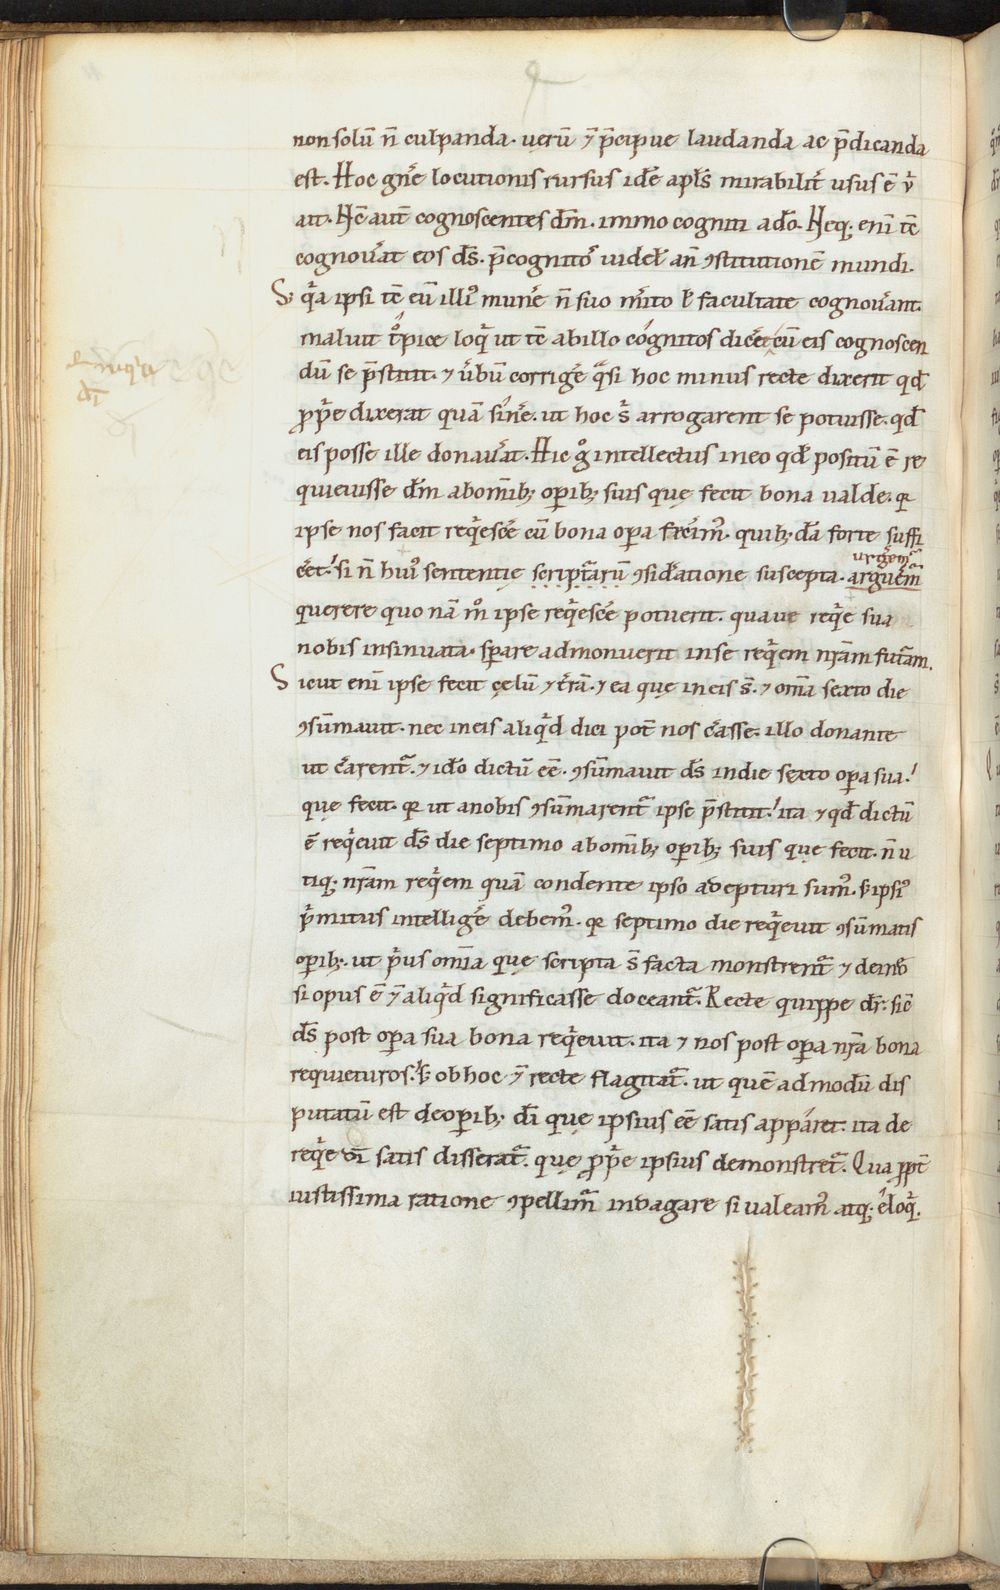 non solū n̄ culpanda. uerū ⁊̄ p̄cipue laudanda ac p̄dicanda
est. Hoc gn̄e locutionis rursus idē apl̄s mirabilit̄ usus ē
ait. Nc̄ autē cognoscentes dm̄. immo cogniti a dō. Neq; eni tē
cognoƲat eos ds̄. p̄cognitor̄ uidel an̄ ꝯstitutionē mundi.
S; q̄a ipsi tē eū illiꝰ munē n̄ suo mīto ł facultate cognoūant.
maluit t̄pice loq̄ ut tē ab illo cognitos dicēt cū eis cognoscen
dū se p̄stitit. ⁊ ūbū corrigē q̄si hoc minus recte dixerit qđ
ꝓp̄e dixerat quā sinē. ut hoc s̄ arrogarent se potuisse. qđ
eis posse ille donaūat. Hic g̊ intellectus in eo qđ positū ē re
quieuisse dm̄ ab om̄ib; oꝑib; suis quę fecit bona ualde. qr
ipse nos facit req̄escē cū bona oꝑa fecim̄ꝰ. quib; đa forte suffi
cēt. si n̄ huiꝰ sententię scriptarū ꝯsidatione suscepta. arguēm̄
urgem̄
querere quo nā m̊ ipse req̄escē potuerit. quaue req̄e sua
nobis insinuata. sꝑare admonuerit in se req̄em nr̄am futām.
Sicut eni ipse fecit cęlū ⁊ t̄rā. ⁊ ea quę in eis s̄. ⁊ om̄a sexto die
ꝯsūmauit. nec in eis aliq̄d dici pot̄ nos c̄asse. illo donante
ut c̄arent̄. ⁊ idō dictū eē. ꝯsūmauit ds̄ in die sexto oꝑa sua.
que fecit. qr ut a nobis ꝯsūmarent̄ ipse p̄stitit. ita ⁊ qđ dictū
ē req̄euit ds̄ die septimo ab om̄ib; oꝑib; suis quę fecit. n̄ u
tiq; nr̄am req̄em quā condente ipso adepturi sumꝰ. s; ipsiꝰ
p̄mitus intelligē debemꝰ. qr septimo die req̄euit ꝯsūmatis
oꝑib;. ut p̄us om̄ia quę scripta s̄ facta monstrent̄ ⁊ deinđ
si opus ē ⁊̄ aliq̄d significasse doceant̄. Recte quippe dr̄. sic̄
ds̄ post oꝑa sua bona req̄euit. ita ⁊ nos post oꝑa nr̄a bona
requieturos. s; ob hoc ⁊̄ recte flagitat̄. ut quē ad modū dis
putatū est de oꝑib; dī quę ipsius eē satis apparet. ita de
req̄e dī satis disserat̄. quę ꝓp̄e ipsius demonstret̄. Qua ꝓpt̄
iustissima ratione ꝯpellim̄ indagare si ualeamꝰ atq; eloq̄.